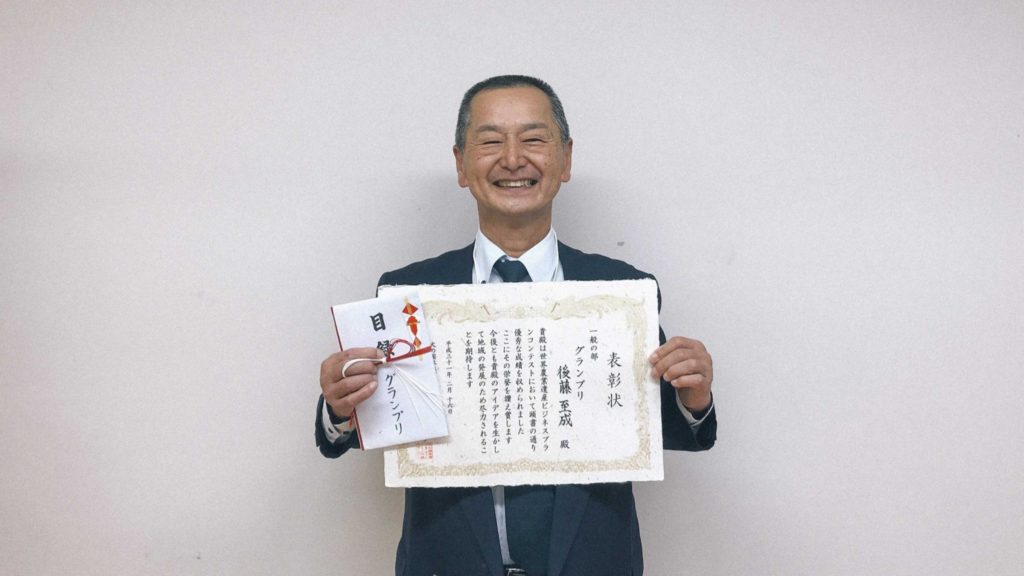 表彰状
一般の部
グランプリ
後藤 至成 殿
貴殿は世界農業遺産ビジネスプラ
ンコンテストにおいて頭書の通り
優秀な成績を収められました
ここにその栄誉を讃え賞します
今後とも貴殿のアイデアを生かし
て地域の発展のため尽力されるこ
とを期待します
平成三十一年 二月 十六日
目録
グランプリ